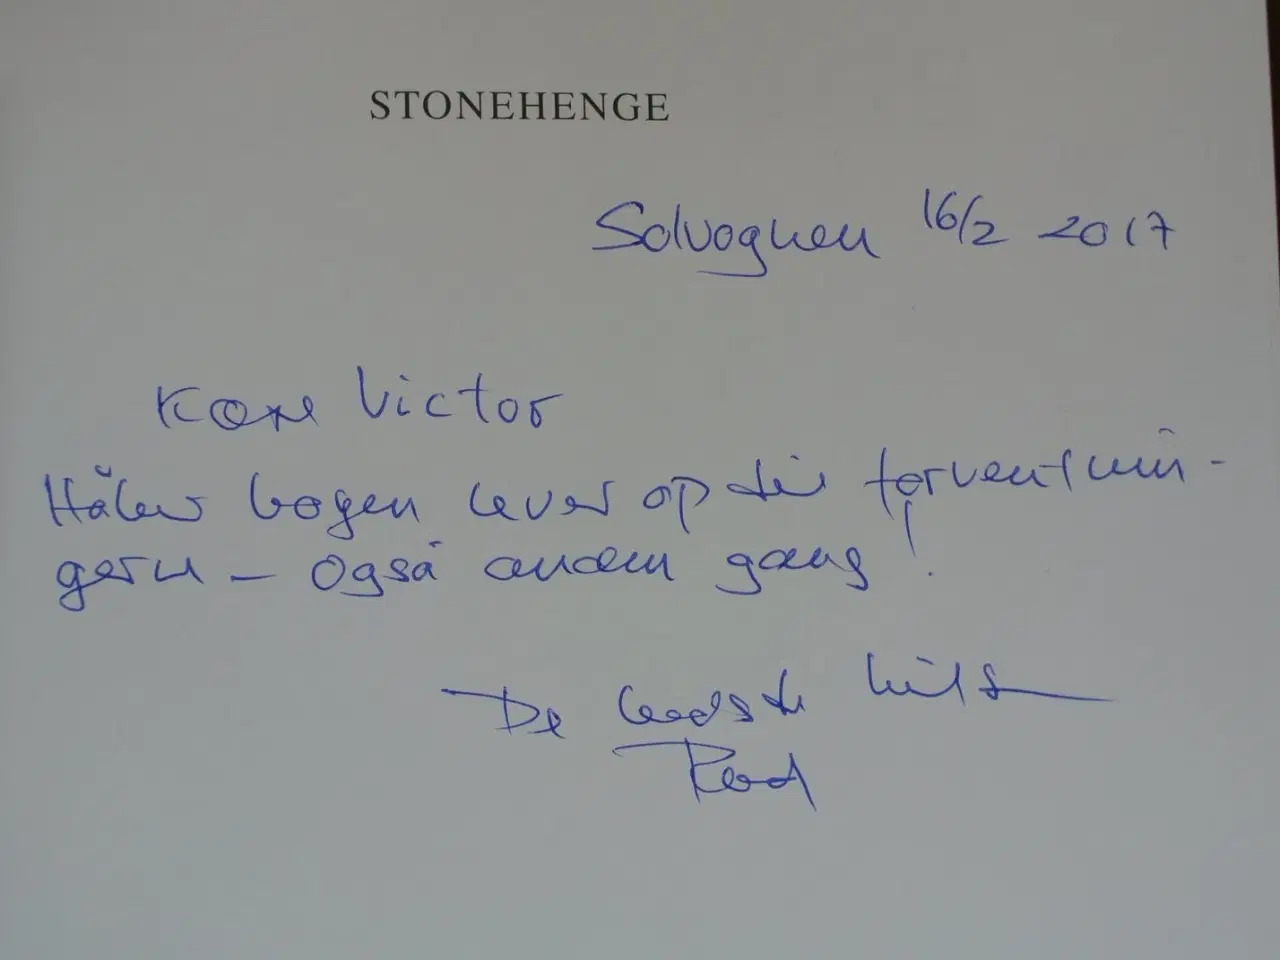 STONEHENGE
Solvognen 16/2 2017
Kære Victor
Håber bogen lever op til forventnin-
gern - også anden gang!
De bedste hilsn